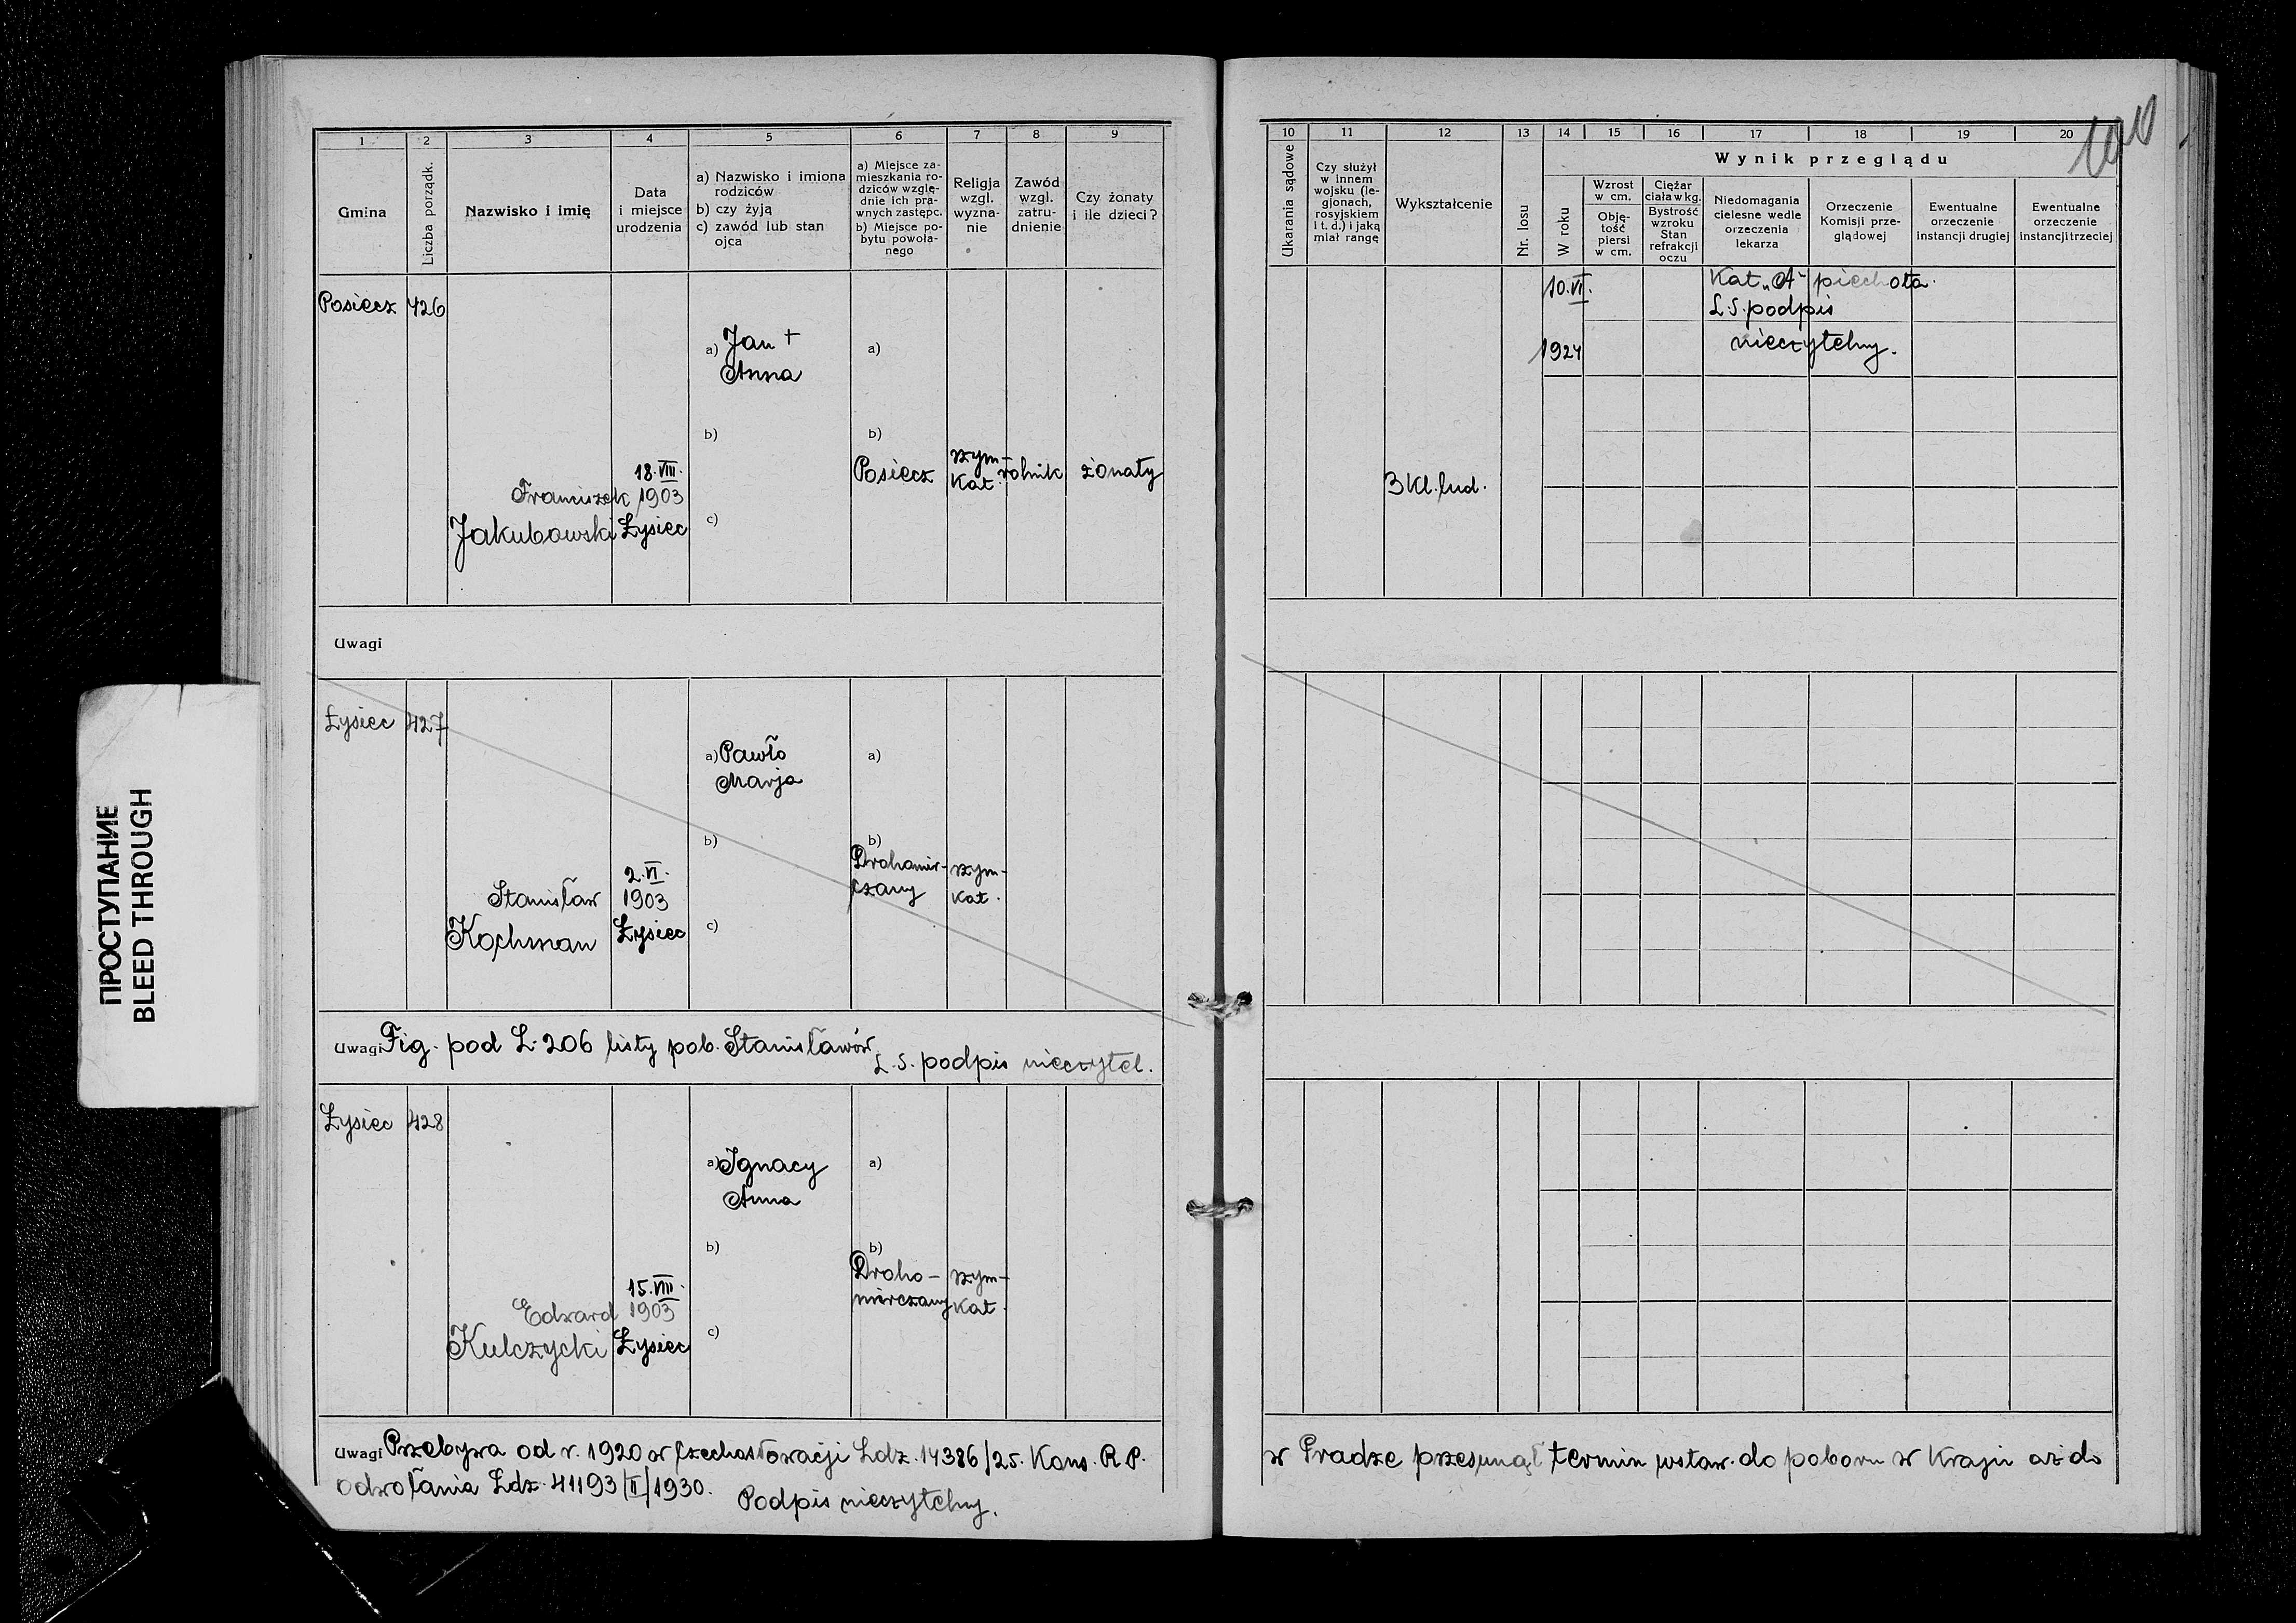 1 2 3 4 5 6 7 8 9
Gmina
Liczba porządk.
Nazwisko i imię
Data
i miejsce
urodzenia
a) Nazwisko i imiona
rodziców
b) czy żyją
c) zawód lub stan
ojca
a) Miejsce za-
mieszkania ro-
dziców wzglę-
dnie ich pra-
wnych zastępc.
b) Miejsce po-
bytu powoła-
nego
Religja
wzgl.
wyzna-
nie
Zawód
wzgl.
zatru-
dnienie
Czy żonaty
i ile dzieci?
10 11 12 13 14 15 16 17 18 19 20
Ukarania sądowe
Czy służył
w innem
wojsku (le-
gjonach,
rosyjskiem
i t. d.) i jaką
miał rangę
Wykształcenie
Nr. losu
Wynik przeglądu
W roku
Wzrost
w cm.
Obję-
tość
piersi
w cm.
Ciężar
ciała w kg.
Bystrość
wzroku
Stan
refrakcji
oczu
Niedomagania
cielesne wedle
orzeczenia
lekarza
Orzeczenie
Komisji prze-
glądowej
Ewentualne
orzeczenie
instancji drugiej
Ewentualne
orzeczenie
instancji trzeciej
Posiecz 426
Franciszek
Jakubowski
18.VIII.
1903
Łysiec
a) Jan +
Anna
b)
c)
a)
b)
Posiecz
rzym-
kat.
rolnik
żonaty
3 kl. lud.
10.VI.
1924
Kat. „A" piechota.
L.S. podpis
nieczytelny.
Uwagi
Łysiec 427
Stanisław
Kochman
2.VI.
1903
Łysiec
a) Pawło
Marja
b)
c)
a)
b)
Drohomir-
czany
rzym-
kat.
Uwagi Fig. pod L. 206 listy pob. Stanisławów
L.S. podpis nieczytel.
Łysiec 428
Edward
Kulczycki
15.VIII.
1903
Łysiec
a) Ignacy
Anna
b)
c)
a)
b)
Droho-
mirczany
rzym-
kat.
Uwagi Przebywa od r. 1920 w Czechosłowacji Ldz. 14386/25. Kons. R.P.
w Pradze przesunął termin wstaw. do poboru w Kraju aż do
odwołania Ldz. 41193/II/1930.
Podpis nieczytelny.
ПРОСТУПАНИЕ
BLEED THROUGH